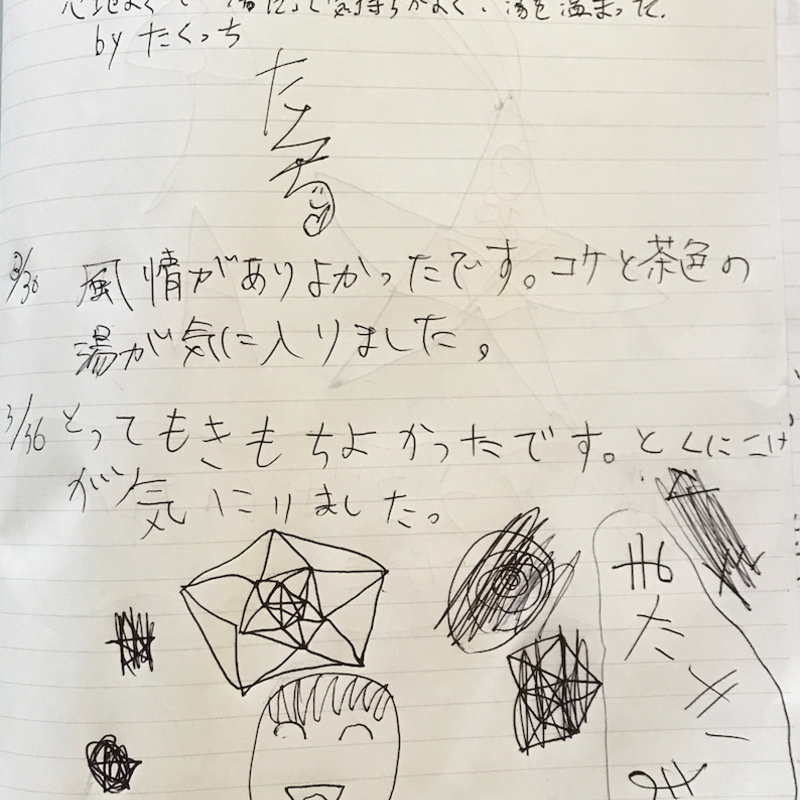 気持ちがよく、
by たくっち
3/30 風情がありよかったです。コケと茶色の
湯が気に入りました。
3/36 とってもきもちよかったです。とくにこけ
が気にりました。
また